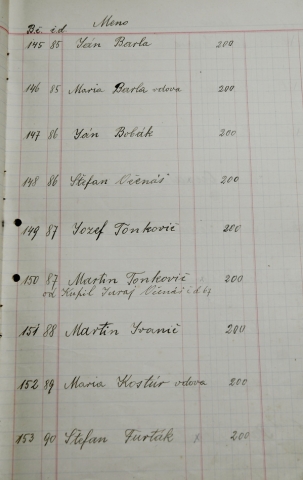 B.č. č.d Meno
145 85 Ján Barla 200
146 85 Maria Barla vdova 200
147 86 Ján Bobák 200
148 86 Štefan Očenáš 200
149 87 Jozef Tonkovič 200
150 87 Martin Tonkovič 200
od Kupil Juraj Očenáš č.d 64
151 88 Martin Ivanič 200
152 89 Maria Kostúr vdova 200
153 90 Štefan Furták 200